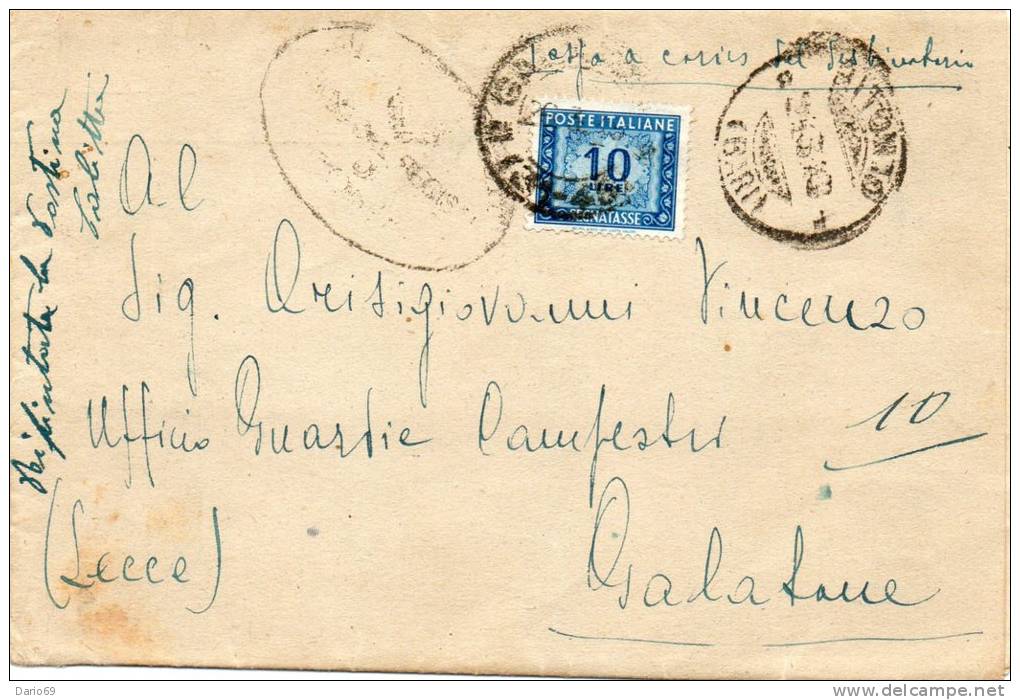 Tassa a carico del destinatario
POSTE ITALIANE
10
LIRE
SEGNATASSE
BITONTO
(BARI)
Al
Sig. Crisigiovanni Vincenzo
Ufficio Guardie Campestri
10
(Lecce)
Galatone
Rifiutata la Postina
Dario69
http://www.delcampe.net